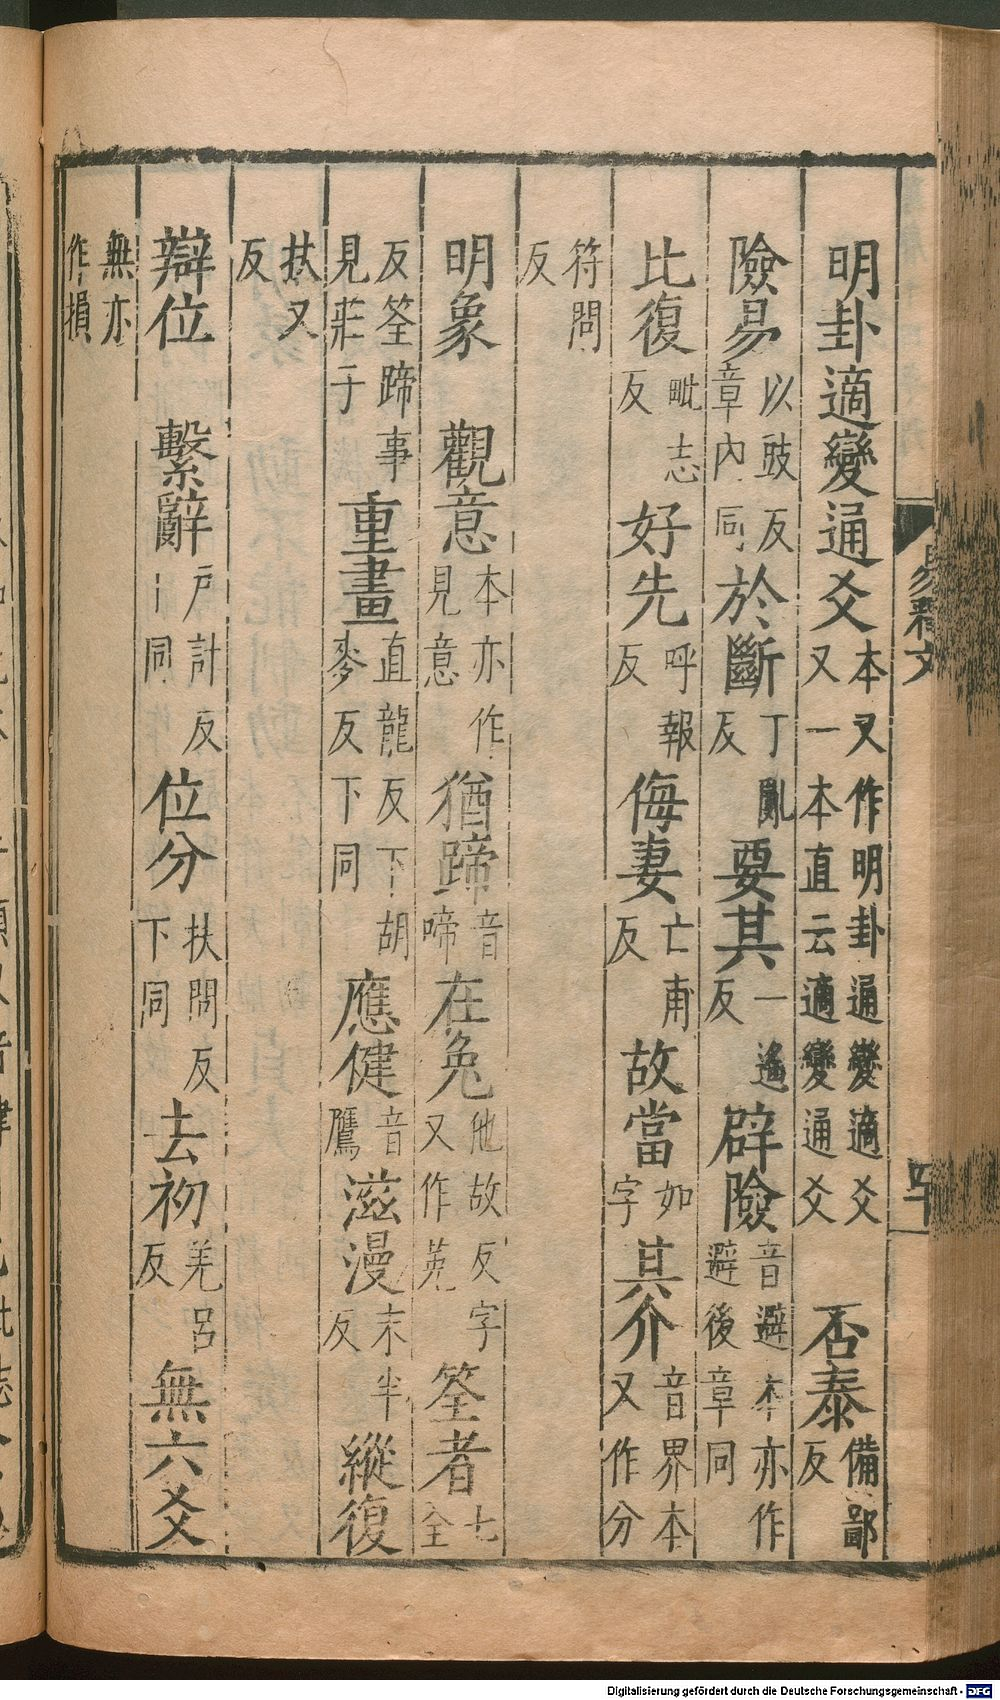 易釋文 四十
明卦適變通爻本又作明卦通變適爻又一本直云適變通爻 否泰備鄙反
險易以豉反章內同於斷丁亂反要其一遙反辟險音避本亦作避後章同
比復毗志反好先呼報反侮妻亡甫反故當如字其介音界本又作分
符問反
明象 觀意本亦作見意猶蹄音啼在兔他故反字又作菟筌者七全
反筌蹄事見莊子重畫直龍反下胡麥反下同應健音鷹滋漫末半反縱復
扶又反
辯位 繫辭戶計反下同位分扶問反下同去初羌呂反無六爻
無亦作損
Digitalisierung gefördert durch die Deutsche Forschungsgemeinschaft - DFG